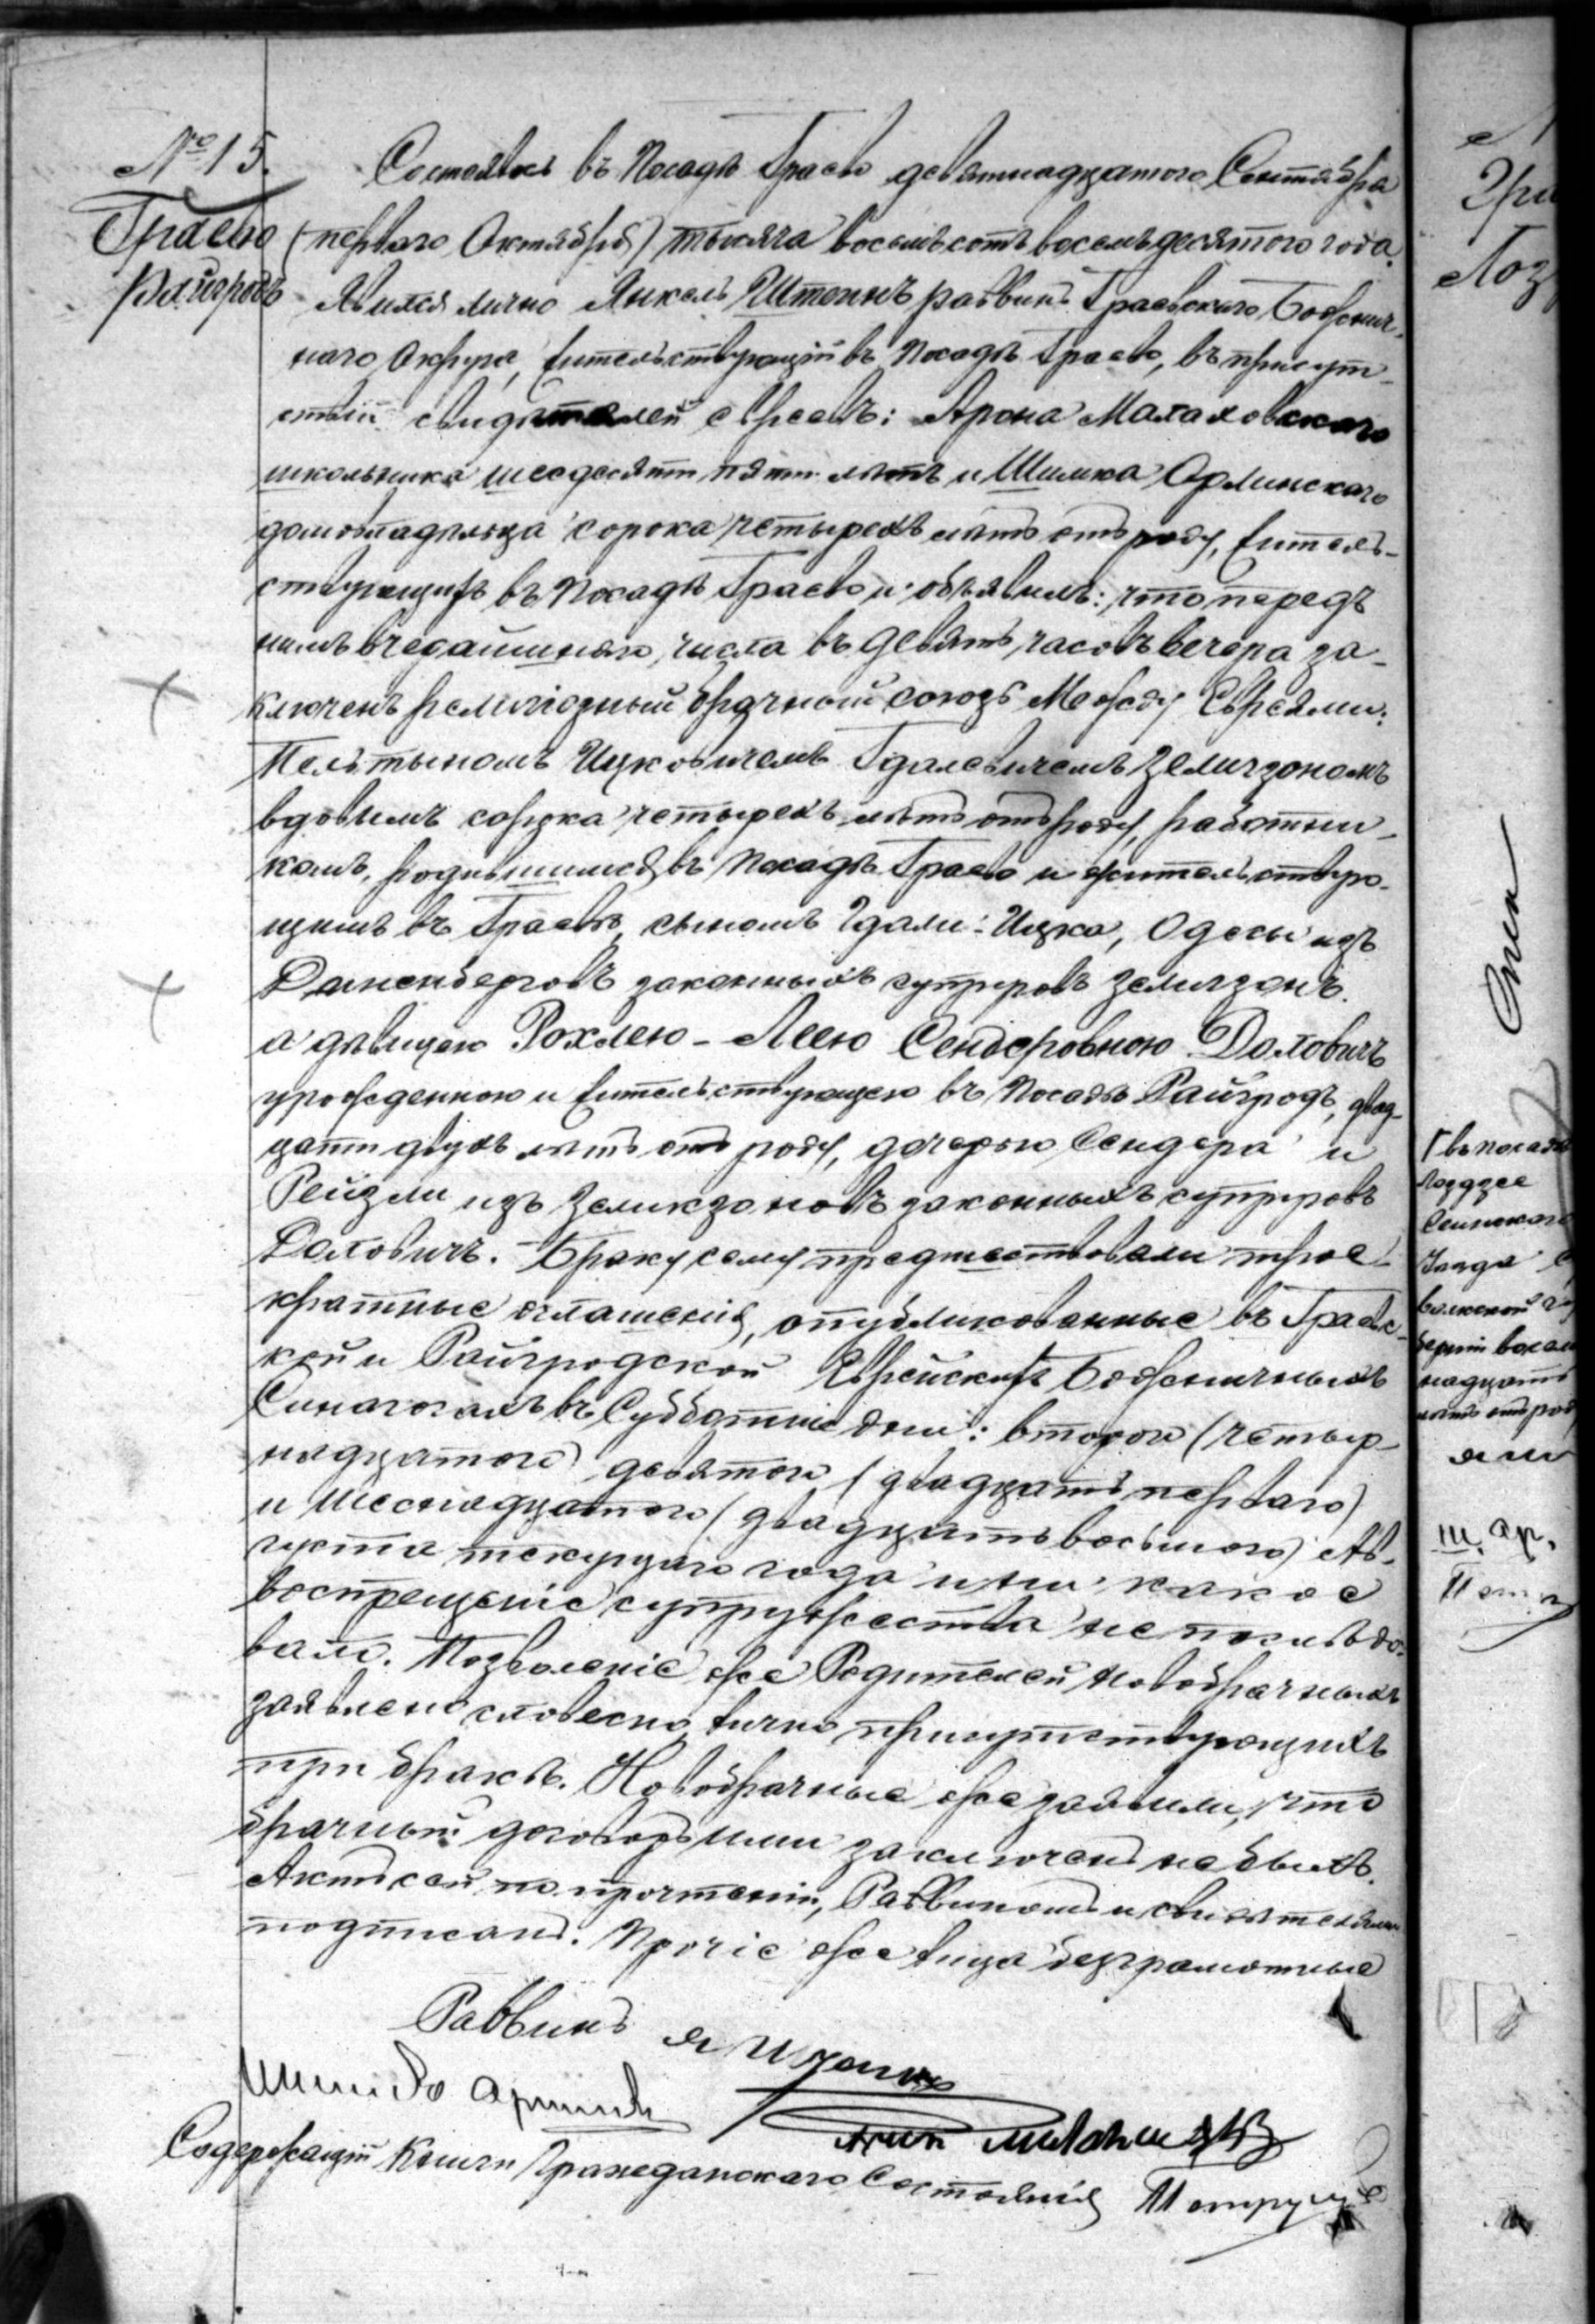 № 15.
Граево
Райгродъ
Состоялось въ Посадѣ Граево девятнадцатого Сентября
(перваго Октября) тысяча восемьсотъ восемьдесятого года.
Явился лично Янкель Штейнъ раввинъ Граевскаго Божнич-
наго Округа, жительствующій въ Посадѣ Граево, въ присут-
ствіи свидѣтелей евреевъ: Арона Малаховскаго
школьника шесдесяти пяти лѣтъ и Шимка Орлинскаго
домовладѣльца сорока четырехъ лѣтъ отъ роду, житель-
ствующихъ въ Посадѣ Граево и объявилъ: что передъ
нимъ вчерайшняго числа въ девять часовъ вечера за-
ключенъ религіозный брачный союзъ Между Евреями:
Пельтыномъ Ицковичемъ Гдалевичемъ Зеликзономъ
вдовымъ сорока четырехъ лѣтъ отъ роду, работни-
комъ, родившимся въ Посадѣ Граево и жительствую-
щимъ въ Граевѣ, сыномъ Гдали-Ицка, Одесы изъ
Даненберговъ законныхъ супруговъ Зеликзонъ.
а дѣвицею Рохлею-Леею Сендеровною Доловичъ
урожденною и жительствующею въ Посадѣ Райгродъ, двад-
цати двухъ лѣтъ отъ роду, дочерью Сендера и
Рейзли изъ Зеликзоновъ законныхъ супруговъ
Доловичъ. Браку сему предшествовали трое-
кратные оглашенія, опубликованные въ Граевс-
кой и Райгродской Еврейскихъ Божничныхъ
Синагогахъ въ Субботніе дни: второго (четыр-
надцатого) девятого (двадцать перваго)
и шеснадцатого (двадцать восьмого) Ав-
густа текущаго года и ни какое
воспрещеніе супружества не послѣдо-
вало. Позволеніе же Родителей Новобрачныхъ
заявлено словесно лично присутствующихъ
при бракѣ. Новобрачные же заявили, что
брачный договоръ ими заключенъ не былъ.
Актъ сей по прочтеніи, Раввиномъ и свидѣтелями
подписанъ. Прочіе же лица безграмотные
Раввинъ Я Штейнъ
Содержащій Книги Гражданскаго Состоянія
Гра
Лоз
въ посадѣ
Лоздзее
Сейнскаго
Уѣзда
надцать
лѣтъ отъ роду